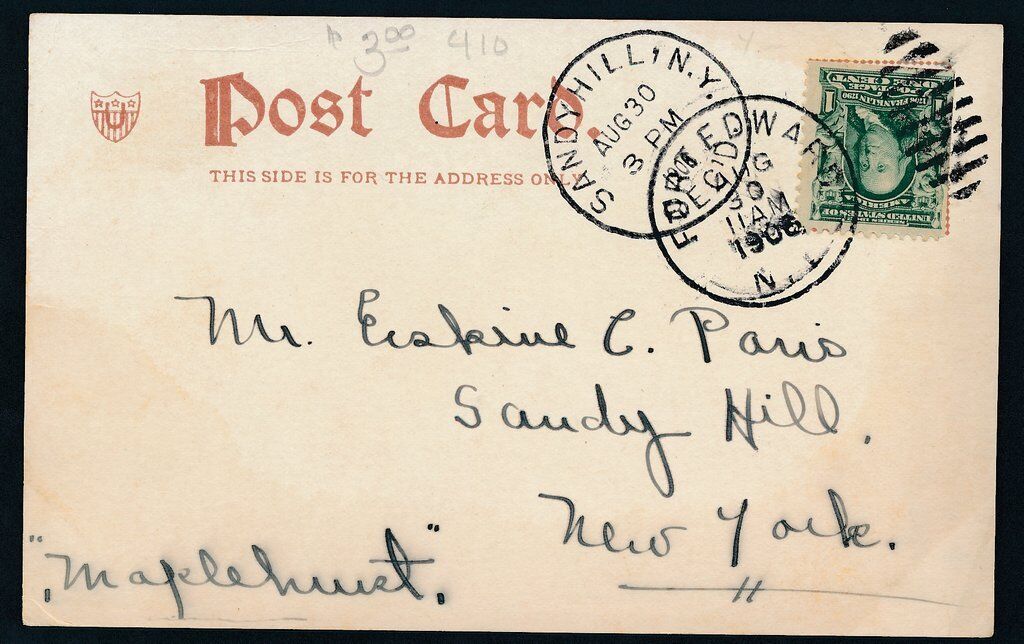 $ 3.00 410
Post Card.
THIS SIDE IS FOR THE ADDRESS ONLY
SANDY HILL, N.Y.
AUG 30
3 PM
1906
REC'D.
FORT EDWARD
AUG
30
11 AM
1906
N.Y.
1 POSTAGE ONE CENT 1
1706 FRANKLIN 1790
SERIES 1902
UNITED STATES OF AMERICA
Mr. Erskine C. Paris
Sandy Hill,
New York.
"Maplehurst,"